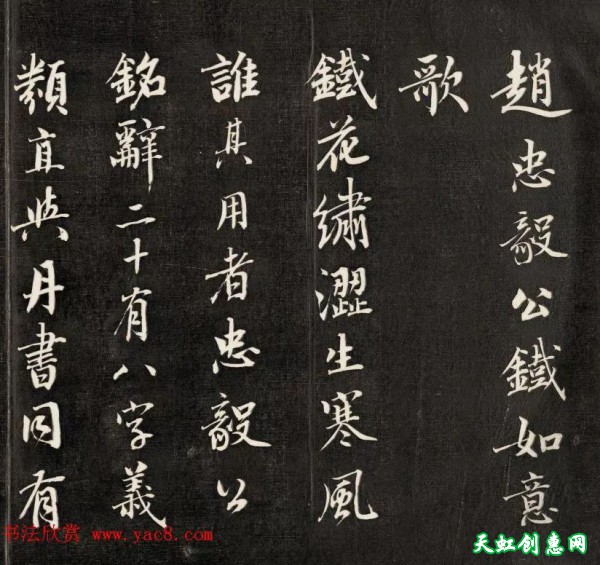 趙忠毅公鐵如意
歌
鐵花繡澀生寒風
誰其用者忠毅公
銘辭二十有八字義
類直與丹書同有
书法欣赏 www.yac8.com
天虹创惠网